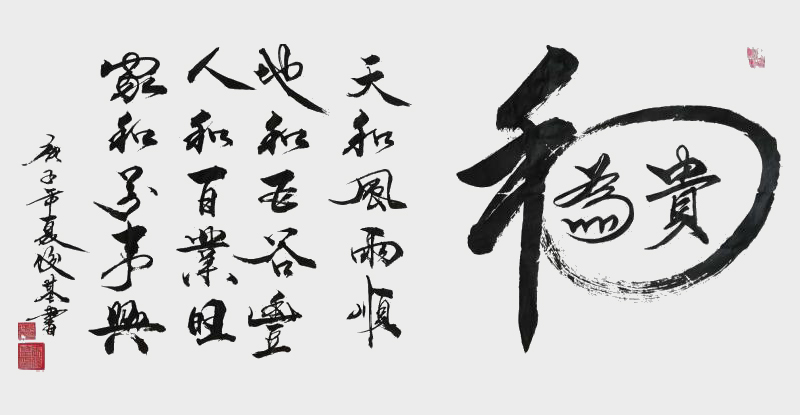 和為貴
天和風雨順
地和五谷豐
人和百業旺
家和萬事興
庚子年夏俊基書